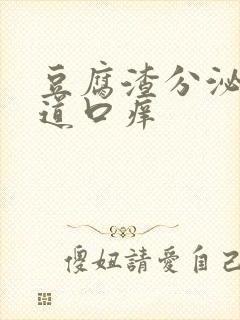 豆腐渣分泌
道口痒
傻妞請愛自己